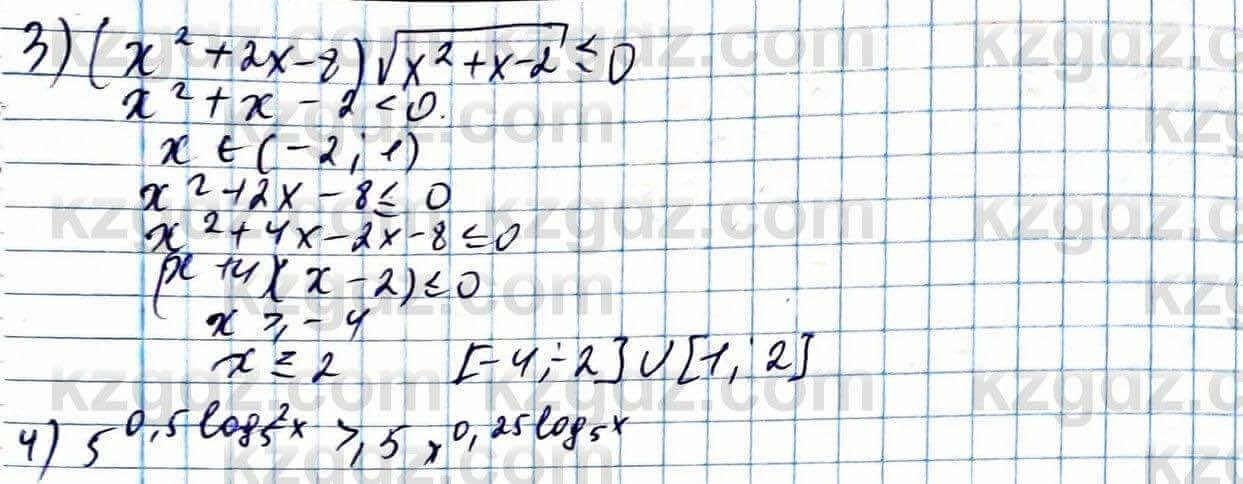 3) (x² + 2x - 8) √(x² + x - 2) ≤ 0
x² + x - 2 < 0.
x ∈ (-2; 1)
x² + 2x - 8 ≤ 0
x² + 4x - 2x - 8 ≤ 0
(x + 4)(x - 2) ≤ 0
x ≥ -4
x ≤ 2 [-4; -2] ∪ [1; 2]
4) 5^(0,5 log₅² x) ≥ 5 x^(0,25 log₅ x)
kzgdz.com